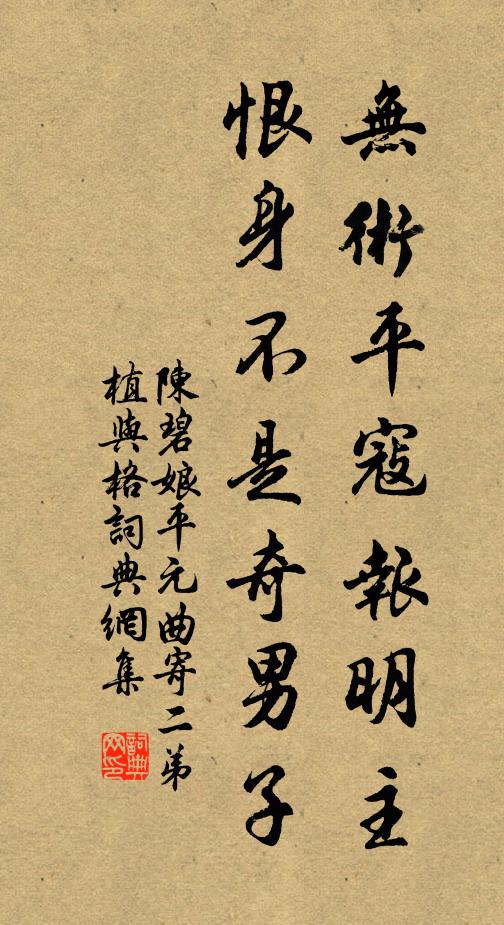 無術平寇報明主
恨身不是奇男子
陳碧娘平元曲寄二弟
植與格詞典網集
詞典網印